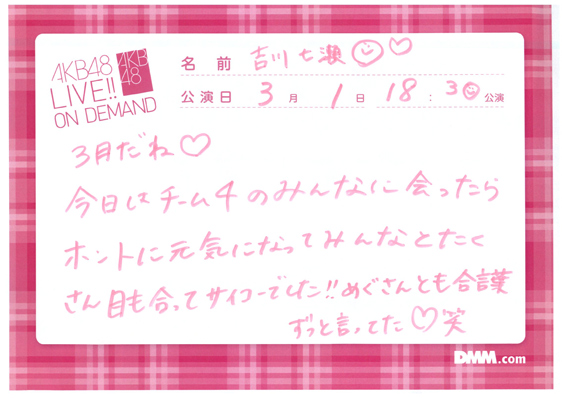 AKB48
LIVE!!
ON DEMAND
AKB
48
名前 吉川七瀬
公演日 3月1日 18:30公演
3月だね♡
今日はチーム4のみんなに会ったら
ホントに元気になってみんなとたく
さん目も合ってサイコーでした!!めぐさんとも合言葉
ずっと言ってた♡笑
DMM.com